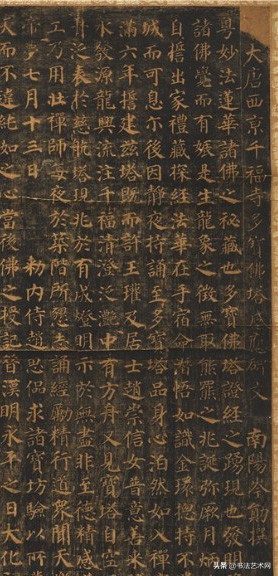 大唐西京千福寺多寶佛塔感應碑文 南陽岑勛撰
粵妙法蓮華諸佛之秘藏也多寶佛塔證經之踴現也發明
諸佛覺而有娠是生龍象之徵無取熊羆之兆誕彌厥月炳
自誓出家禮藏探經法華在手宿命潛悟如識金環總持不
城而可息尒後因靜夜持誦至多寶塔品身心泊然如入禪
滿六年誓建茲塔既而許王瓘及居士趙崇信女普意善來
水發源龍興流注千福清澄泛灩中有方舟又見寶塔自空
泛表於慈航塔現兆於有成燈明示於無盡非至德精感
工乃用壯禪師每夜於築階所懇志誦經勵精行道眾聞天
帝夢七月十三日 勑內侍趙思侃求諸寶坊驗以所
天而不違純如之心當後佛之授記昔漢明永平之日大化
头条 @书法艺术网